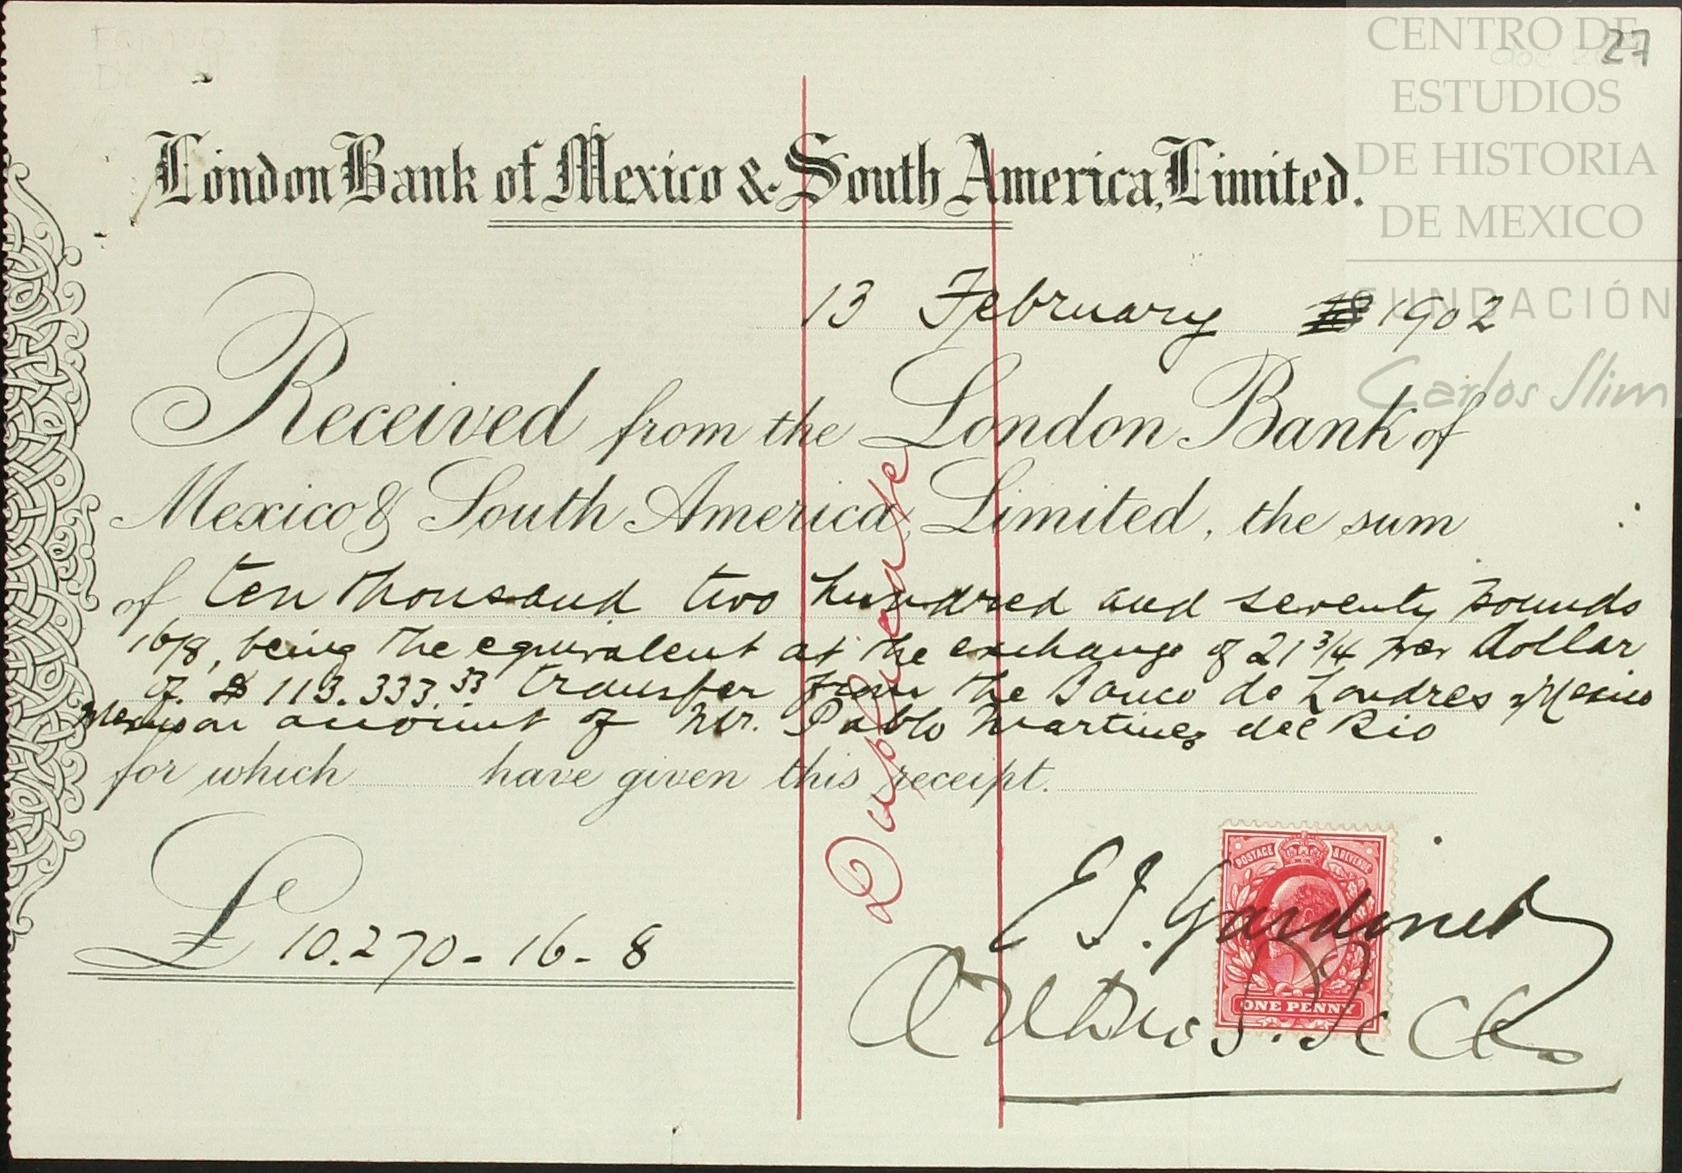 27
CENTRO DE
ESTUDIOS
DE HISTORIA
DE MEXICO
FUNDACIÓN
Carlos Slim
London Bank of Mexico & South America, Limited.
13 February 1902
Received from the London Bank of
Mexico & South America, Limited, the sum
of ten thousand two hundred and seventy pounds
16/8, being the equivalent at the exchange of 21 3/4 per dollar
of $ 113.333.33 transfer from the Banco de Londres y Mexico
Mexico on account of Mr. Pablo Martinez del Rio
for which have given this receipt.
Duplicate
£ 10.270-16-8
POSTAGE & REVENUE
ONE PENNY
E J.